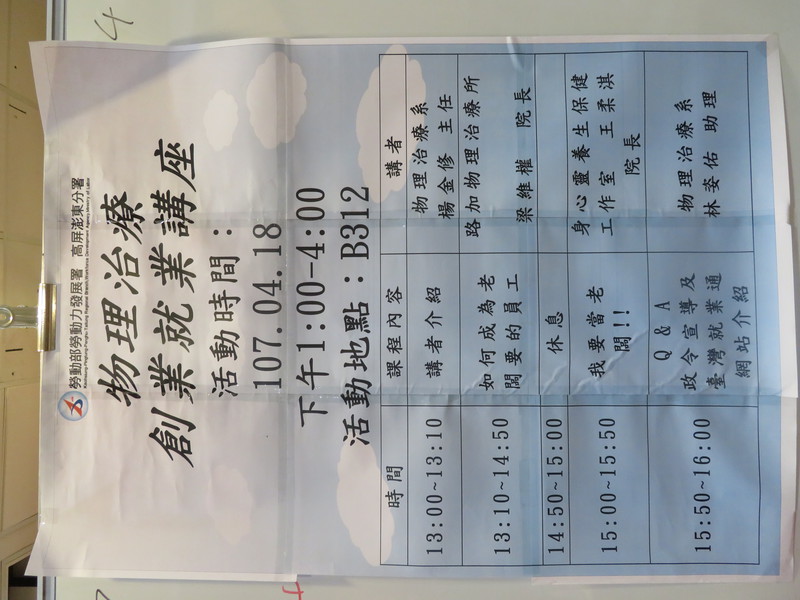 勞動部勞動力發展署 高屏澎東分署
物理治療
創業就業講座
活動時間：
107.04.18
下午1:00-4:00
活動地點：B312
時間 課程內容 講者
13:00~13:10 講者介紹 物理治療系
楊金修 主任
13:10~14:50 如何成為老
闆要的員工 路加物理治療所
梁維權 院長
14:50~15:00 休息
15:00~15:50 我要當老
闆!! 身心靈養生保健
工作室 王柔淇
院長
15:50~16:00 Q & A
政令宣導及
臺灣就業通
網站介紹 物理治療系
林姿佑 助理
4